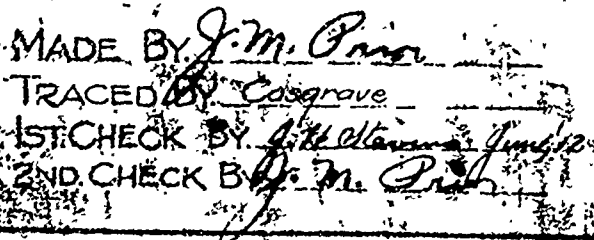 MADE BY J. M. Prior
TRACED BY Cosgrave
1ST. CHECK BY J. H. June 12
2ND CHECK BY J. M. Prior